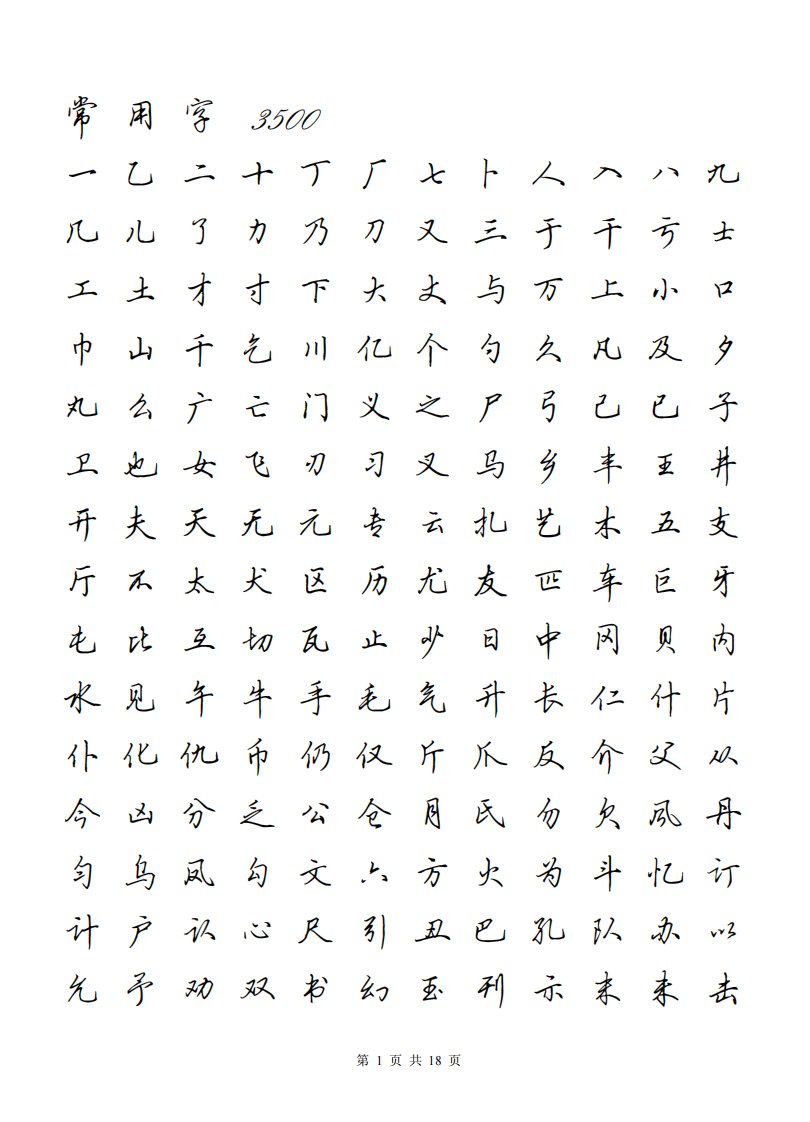 常 用 字 3500
一 乙 二 十 丁 厂 七 卜 人 入 八 九
几 儿 了 力 乃 刀 又 三 于 干 亏 士
工 土 才 寸 下 大 丈 与 万 上 小 口
巾 山 千 乞 川 亿 个 勺 久 凡 及 夕
丸 么 广 亡 门 义 之 尸 弓 己 已 子
卫 也 女 飞 刃 习 叉 马 乡 丰 王 井
开 夫 天 无 元 专 云 扎 艺 木 五 支
厅 不 太 犬 区 历 尤 友 匹 车 巨 牙
屯 比 互 切 瓦 止 少 日 中 冈 贝 内
水 见 午 牛 手 毛 气 升 长 仁 什 片
仆 化 仇 币 仍 仅 斤 爪 反 介 父 从
今 凶 分 乏 公 仓 月 氏 勿 欠 风 丹
匀 乌 凤 勾 文 六 方 火 为 斗 忆 订
计 户 认 心 尺 引 丑 巴 孔 队 办 以
允 予 劝 双 书 幻 玉 刊 示 末 未 击
第 1 页 共 18 页